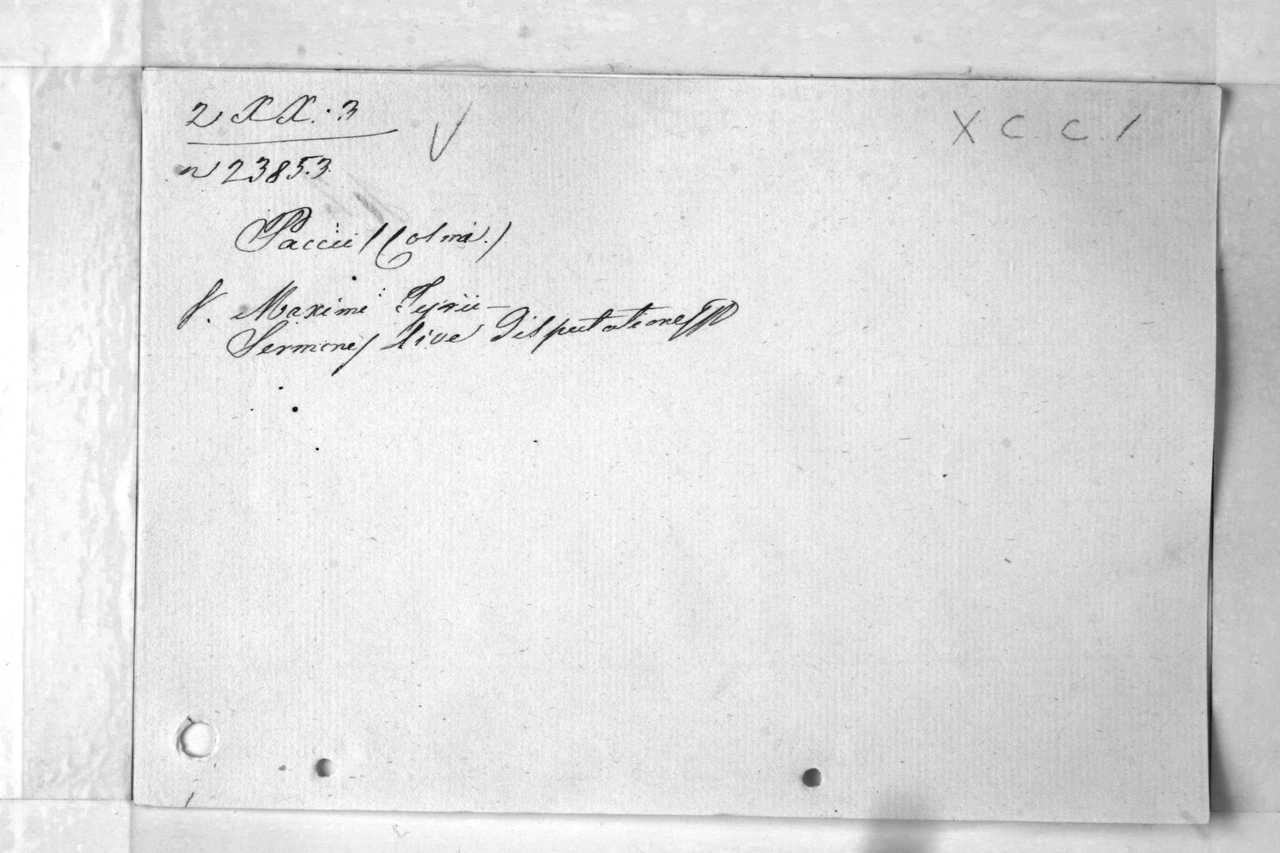 2 XX. 3
X C. C. /
n 23853
Paccii (Cosma.)
V. Maximi Tyrii -
Sermones sive Disputationes